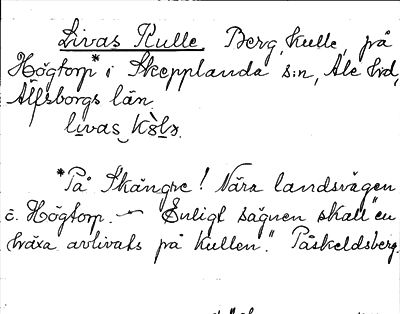 Livas Kulle Berg, kulle, på
Högtorp* i Skepplanda s:n, Ale hd,
Älfsborgs län.
*På Skångre! Nära landsvägen
Högtorp. — Enligt sägnen skall "en
häxa avlivats på kullen." Påskeldsberg.